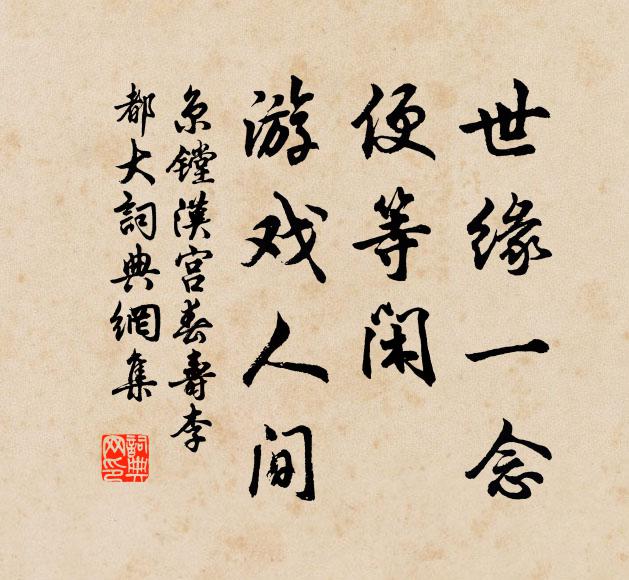 世缘一念
便等闲
游戏人间
京镗漢宫春壽李
都大詞典網集
詞典网印